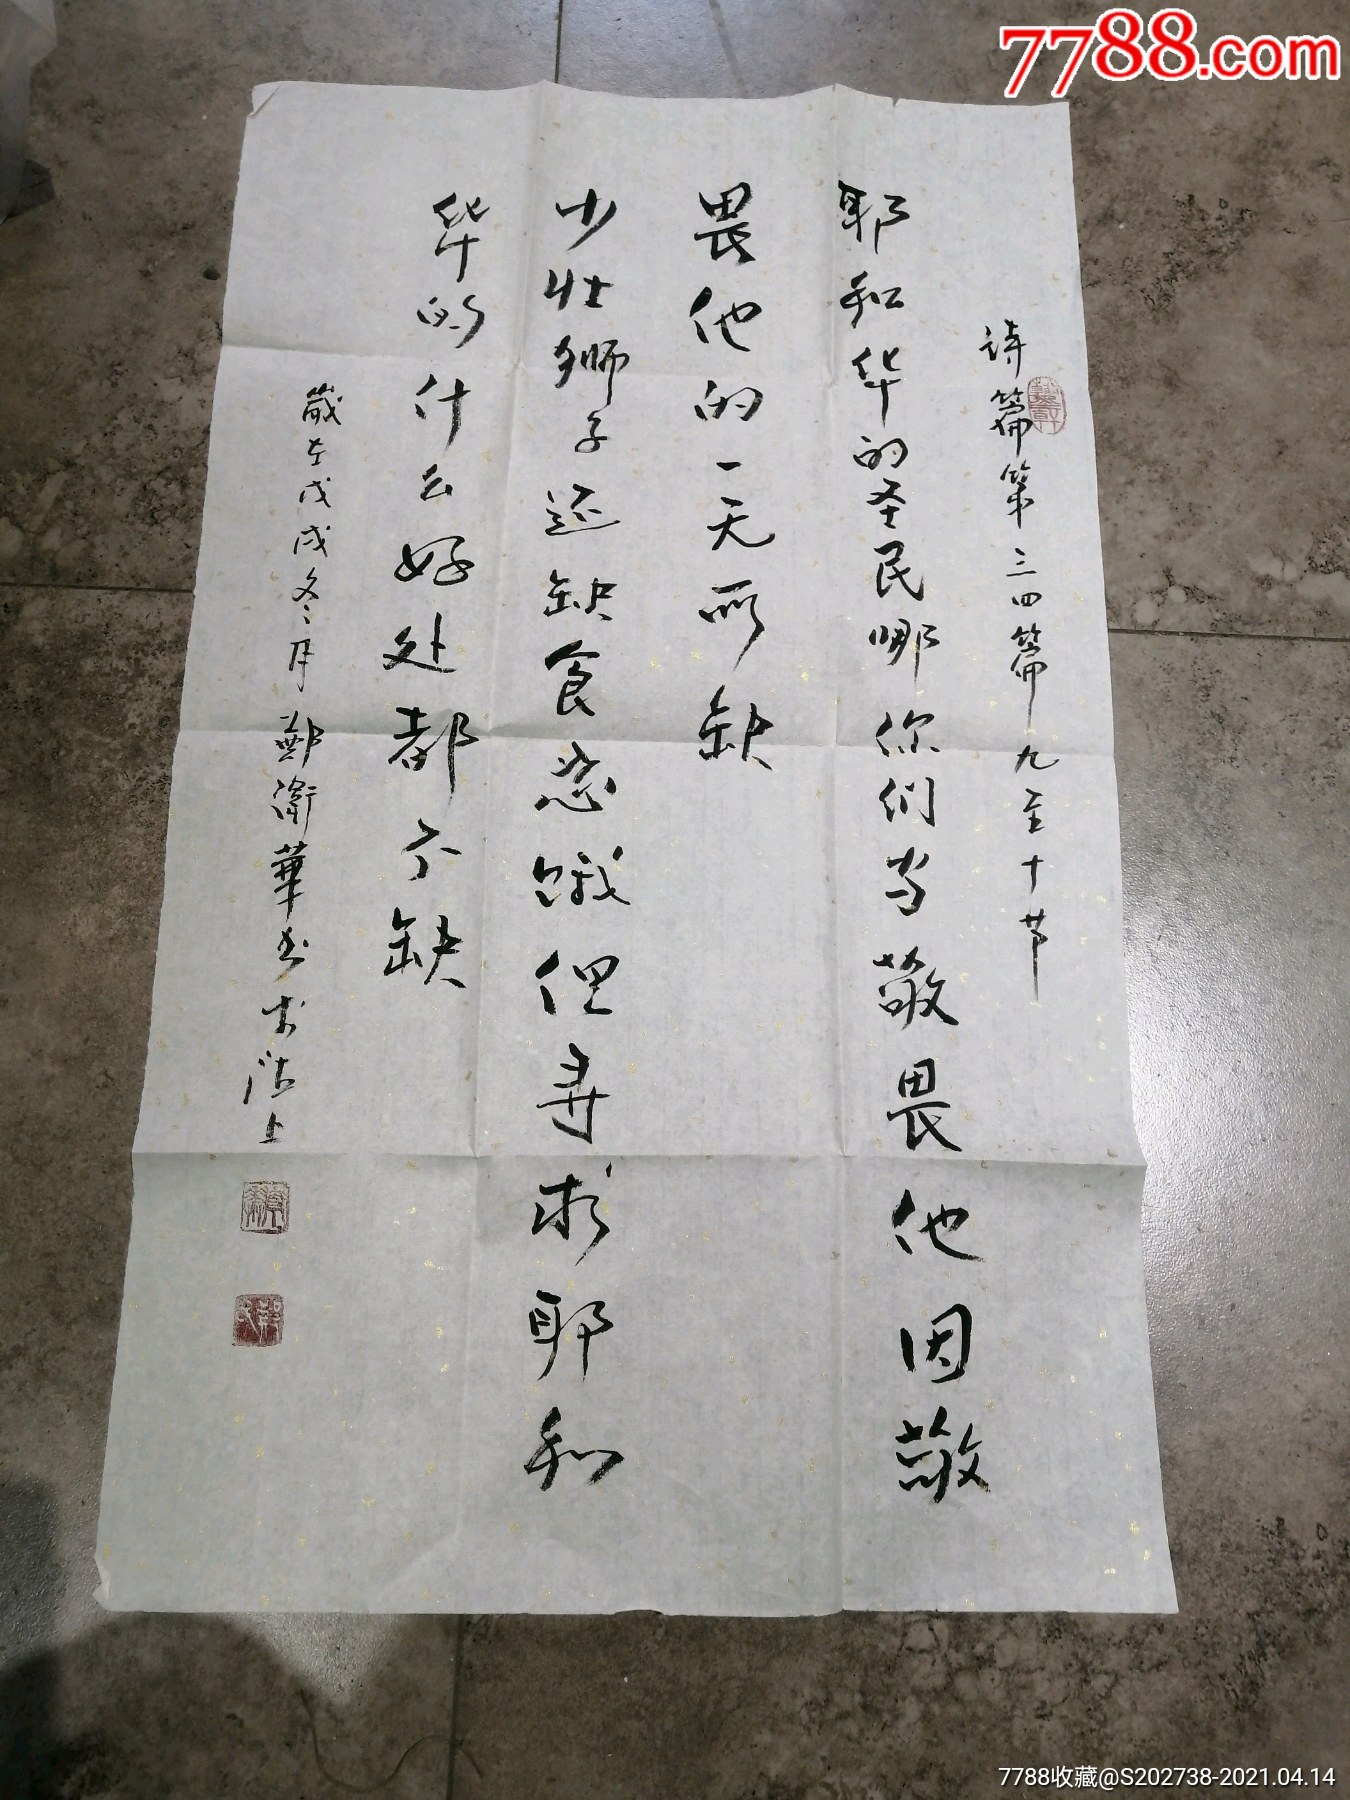 7788.com
诗篇第三四篇九至十节
耶和华的圣民哪你们当敬畏他因敬
畏他的一无所缺
少壮狮子还缺食忍饿但寻求耶和
华的什么好处都不缺
歲在戊戌冬月鄭衛華书于沽上
7788收藏@S202738-2021.04.14